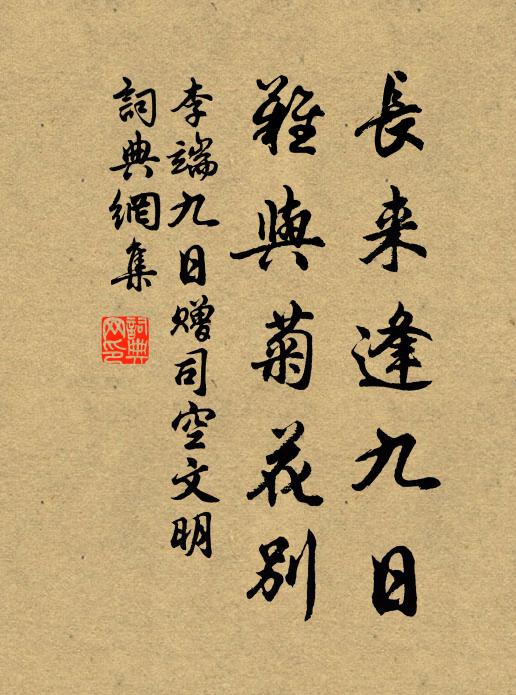 長来逢九日
難與菊花別
李端九日贈司空文明
詞典網集
詞典網印